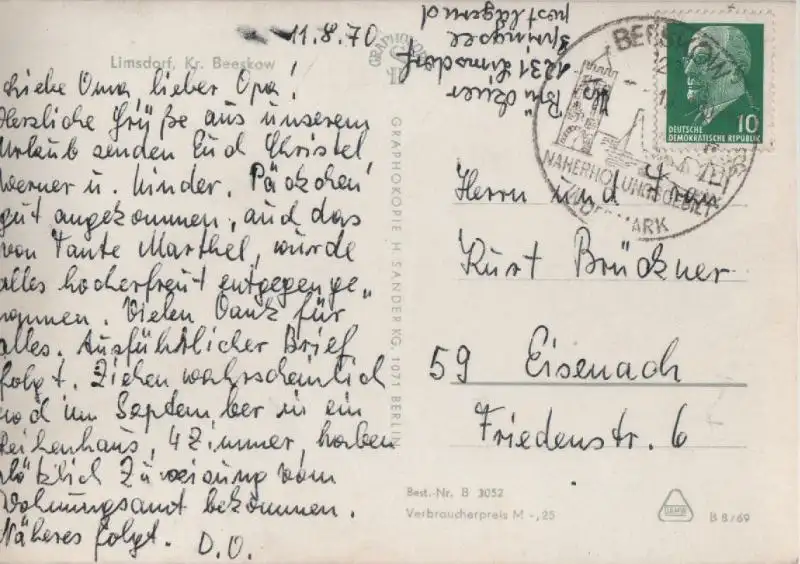 11.8.70
Limsdorf, Kr. Beeskow
Liebe Oma, lieber Opa!
Herzliche Grüße aus unserem
Urlaub senden Euch Christel,
Werner u. Kinder. Päckchen
gut angekommen, auch das
von Tante Marthel, wurde
alles hocherfreut entgegenge„
nommen. Vielen Dank für
alles. Ausführlicher Brief
folgt. Ziehen wahrscheinlich
noch im September in ein
Reihenhaus, 4 Zimmer, haben
plötzlich Zuweisung vom
Wohnungsamt bekommen.
Näheres folgt. D.O.
Brückner
1231 Limsdorf
Springsee
postlagernd
GRAPHOKOPIE H. SANDER KG, 1071 BERLIN
BEESKOW
NAHERHOLUNGSGEBIET
DEUTSCHE
DEMOKRATISCHE REPUBLIK
10
Herrn und Frau
Kurt Brückner
59 Eisenach
Friedenstr. 6
Best.-Nr. B 3052
Verbraucherpreis M -,25
B 8/69